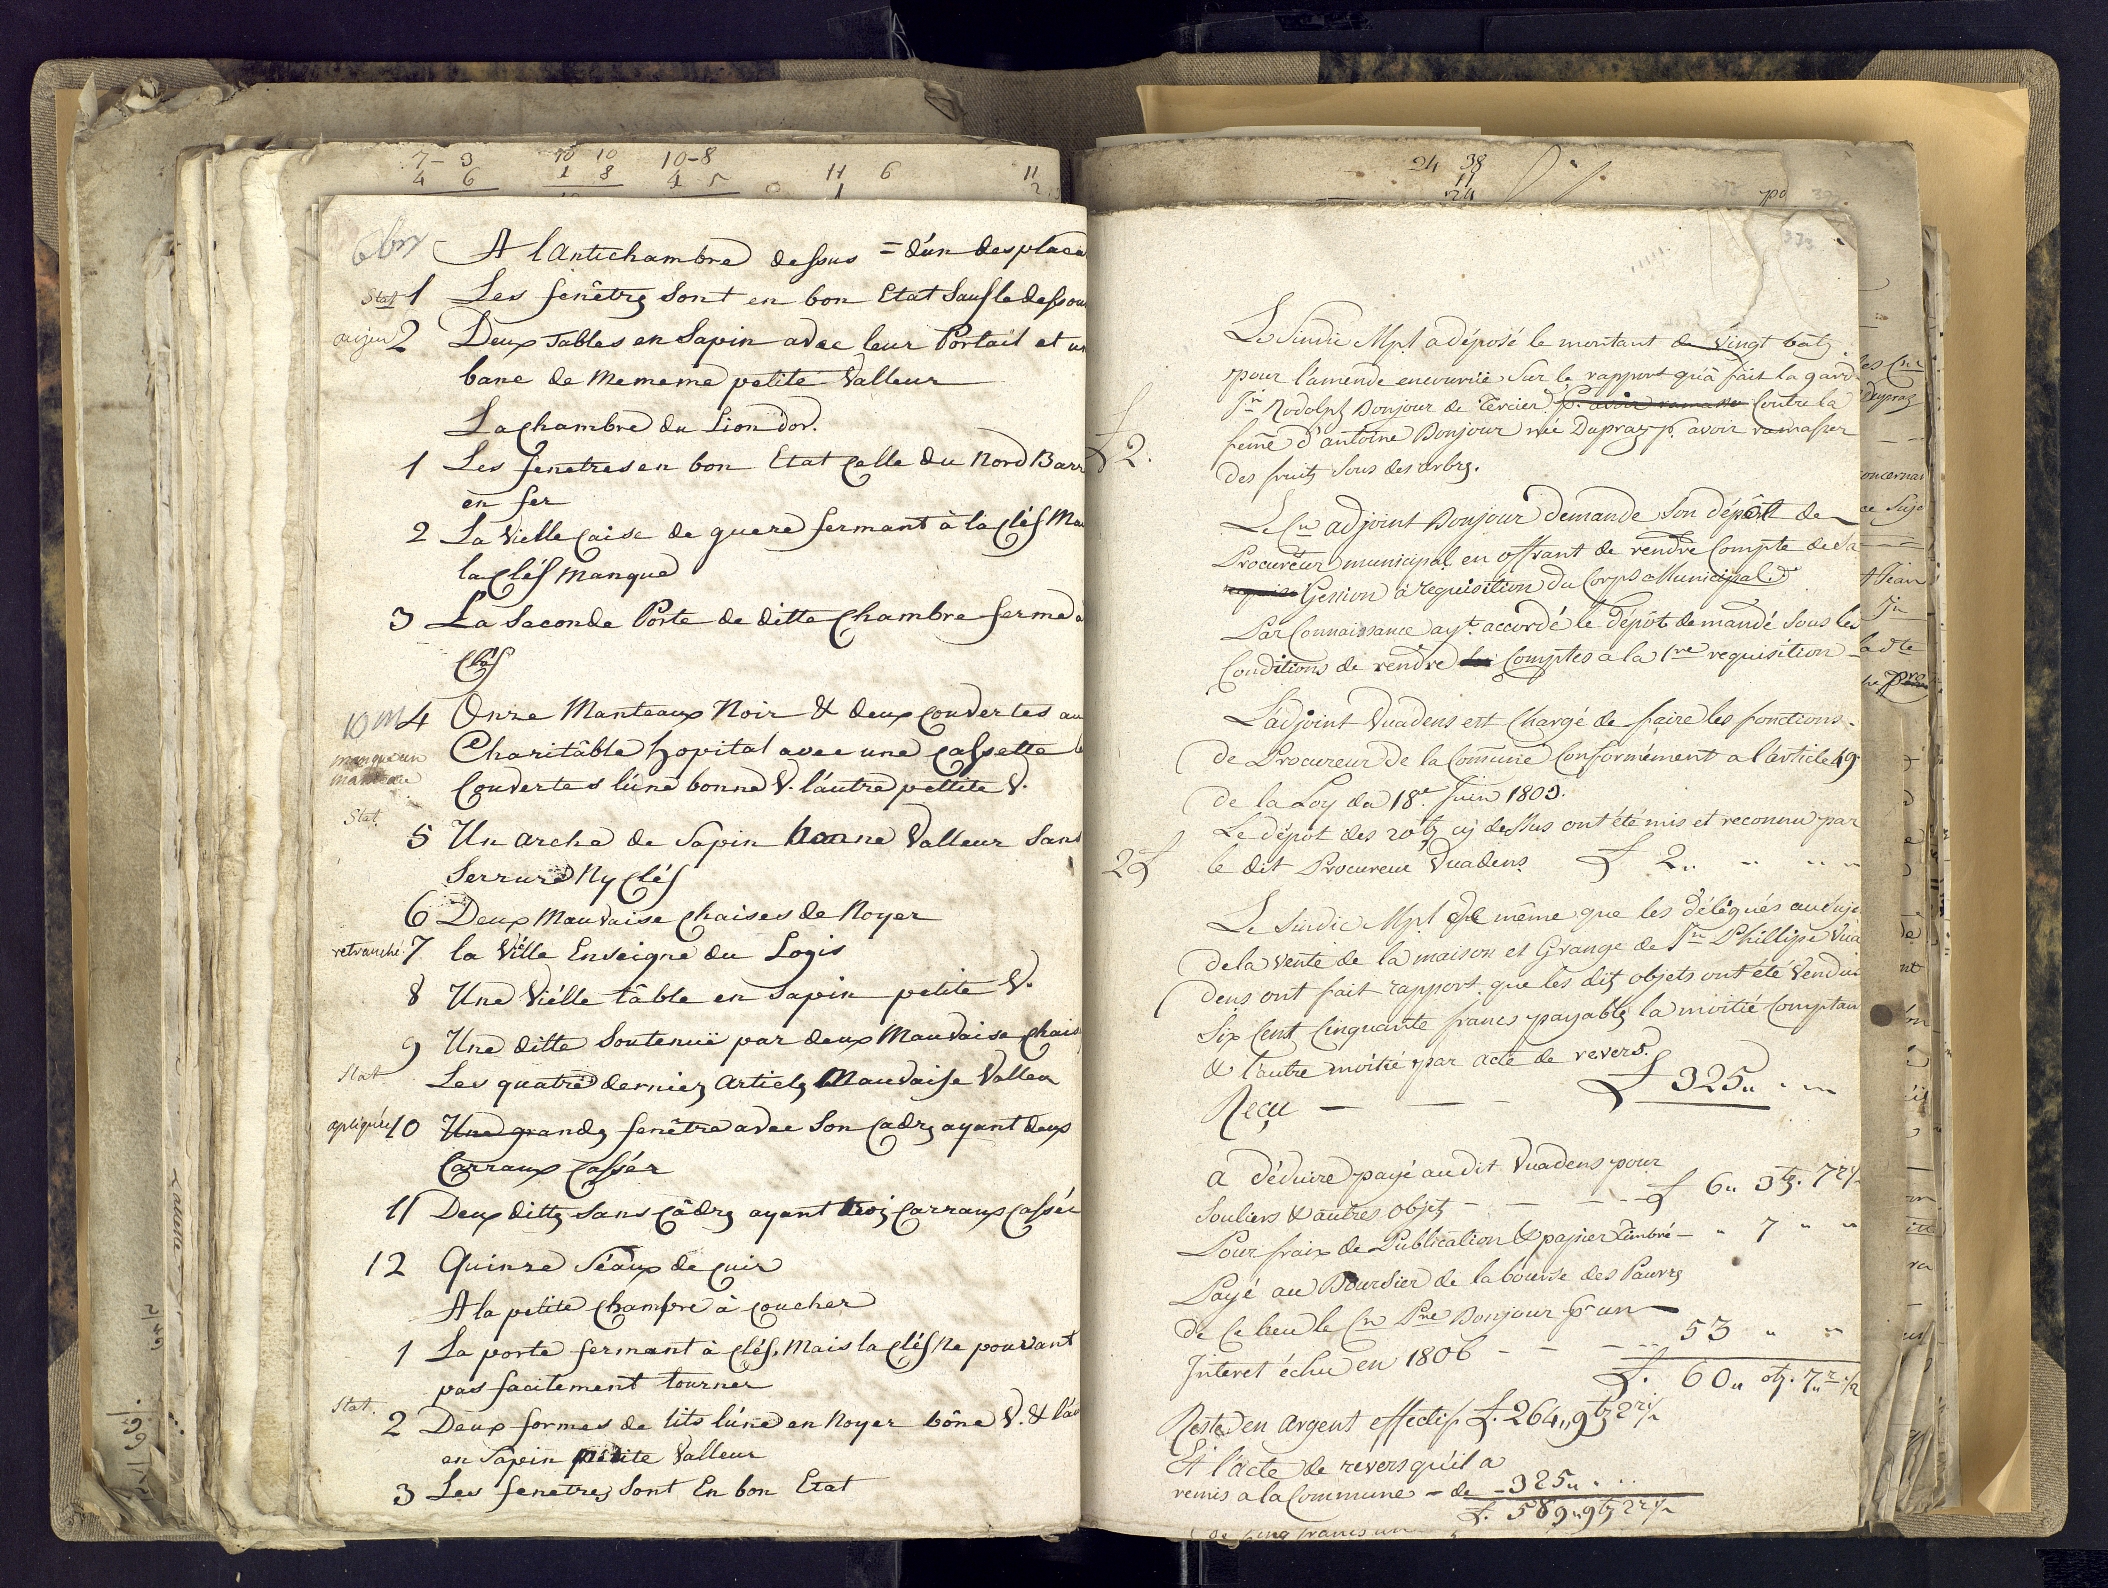 7 - 3 70 10 10-8 11 6 11
4 6 1 8 4 5 1 2
A l'antichambre dessus = d'un desplace
Stat 1 Les fenêtres sont en bon Etat Sauf le dessou
2 Deux Tables en Sapin avec leur Portail et un
banc de mememe petite Valleur
La Chambre du Lion d'or.
1 Les fenetres en bon Etat Celle du Nord Barr
en fer
2 La Vielle Caise de guere fermant à la Cléf Ma
la Cléf Manque
3 La Seconde Porte de ditte Chambre ferme a
Cléf
10 m 4 Onze Manteaux Noir & deux Couvertes au
manque un Charitâble hopital avec une Cassette
manteau Couvertes l'une bonne V. l'autre pettite V.
Stat.
5 Un arche de Sapin bonne Valleur Sans
Serrure Ny Cléf
6 Deux Mauvaise Chaises de Noyer
retranché. 7 la Vielle Enseigne du Logis
8 Une Viélle tâble en Sapin petite V.
9 Une ditte Soutenuë par deux Mauvaise Chais
Stat Les quatre derniez Articlz Mauvaise Valleu
apliquée 10 Une grandz fenêtre avec Son Cadrz ayant deux
Carraux Cassér
11 Deux dittz Sans Câdrz ayant troiz Carraux Cassér
12 Quinze Séaux de Cuir
A la petite Chambre à Coucher
1 La porte fermant à Cléf, Mais la Cléf Ne pouvant
pas facilement tourner
Stat.
2 Deux formes de lits l'une en Noyer bône V. & l'au
en Sapin petite Valleur
3 Les fenetrez Sont En bon Etat
24 38
11
24
373
Le Sindic Mpl a déposé le montant de Vingt batz
pour l'amende encourrüe Sur le rapport qu'a fait la gard
Jn Rodolph Bonjour de Tercier p. avoir ramasser Contre la
£ 2. femme d'antoine Bonjour née Dupraz p. avoir ramasser
des fruitz Sous des arbrz.
Le Cn adjoint Bonjour demande Son dépôt de
Procureur municipal en offrant de rendre Compte de Sa
Gession à requisition du Corps Municipal
Par Connaissance ayt. accordé le dépôt demandé Sous les
Conditions de rendre Comptes à la 1re requisition
L'adjoint Vuadens est Chargé de faire les fonctions
de Procureur de la Commune Conformément a l'article 49
de la Loy du 18e. Juin 1803.
Le dépot des 20 tz cÿ dessus ont été mis et reconnu par
2 £ le dit Procureur Vuadens. £ 2 „ „ „
Le Sindic Mpl de même que les délégués au Suje
de la vente de la maison et Grange de Jn Phillipe Vua
dens ont fait rapport que les ditz objets ont été Vendu
Six Cent Cinquante francs payablz la moitié Comptan
& l'autre moitié par acte de revers.
Reçu — — — £ 325 „ „ „
a déduire payé au dit Vuadens pour
Souliers & autres objetz - - - £ 6 „ 3 tz. 7 r ½
Pour fraix de Publication & papier timbré - „ 7 „ „
Payé au Boursier de la bourse des Pauvrz
de Ce lieu le Cn Pre Bonjour pr un
Interet échu en 1806 - - - 53 „ „
£. 60 „ btz. 7 „ r ½
Reste en argent effectif £. 264 „ 9 tz 2 r ½
Et l'acte de revers qu'il a
remis a la Commune - de - 325 „ „
£. 589 „ 9 tz 2 r ½